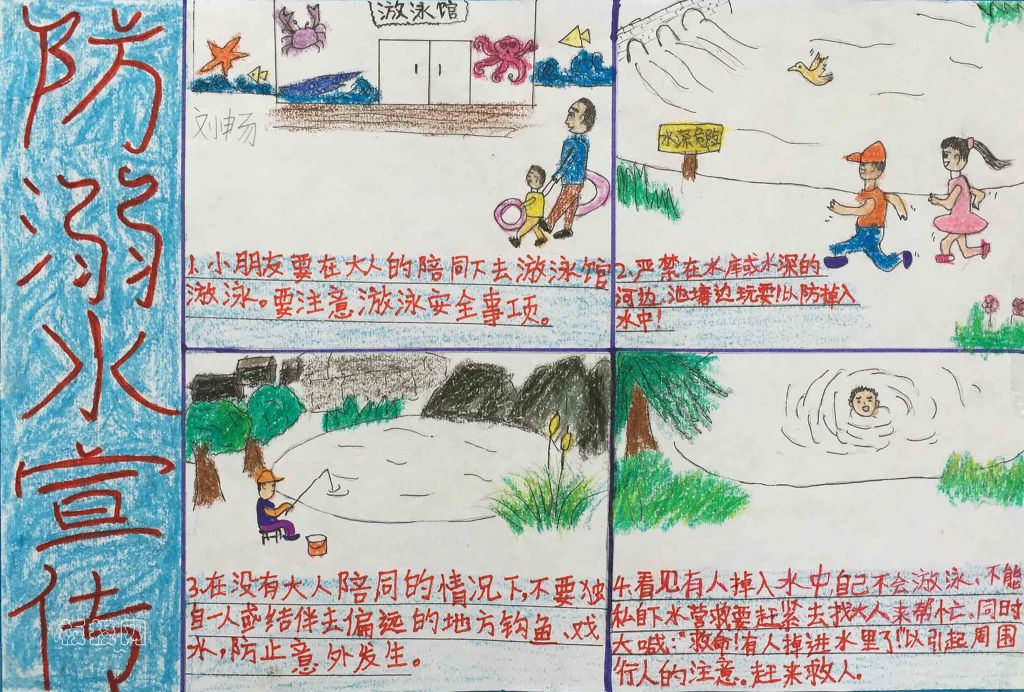 防溺水宣传
游泳馆
刘畅
1.小朋友要在大人的陪同下去游泳馆
游泳。要注意游泳安全事项。
水深危险
2.严禁在水库或水深的
河边、池塘边玩耍!以防掉入
水中!
3.在没有大人陪同的情况下,不要独
自一人或结伴去偏远的地方钓鱼、戏
水,防止意外发生。
4.看见有人掉入水中自己不会游泳、不能
私下水营救要赶紧去找大人来帮忙。同时
大喊:“救命!有人掉进水里了!”以引起周围
行人的注意。赶来救人。